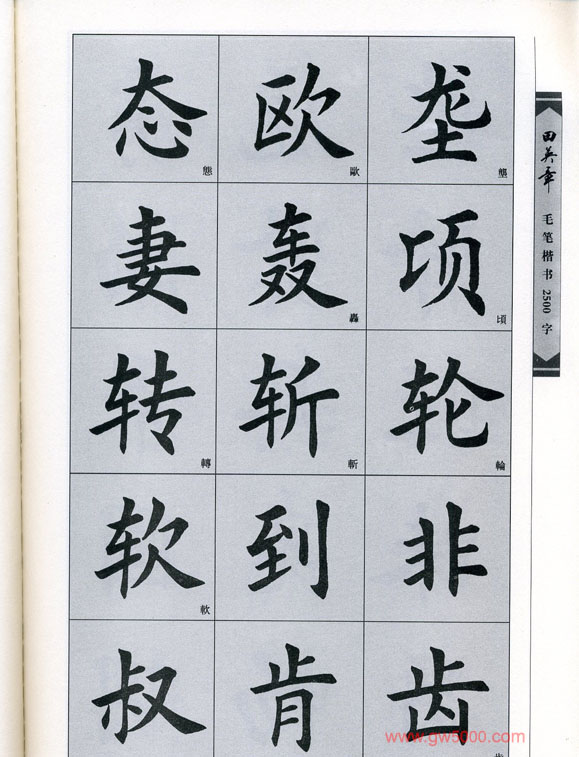 态 欧 垄
態 歐 壟
妻 轰 顷
轟 頃
转 斩 轮
轉 斬 輪
软 到 非
軟
叔 肯 齿
田英章 毛笔楷书2500字
www.gw5000.com